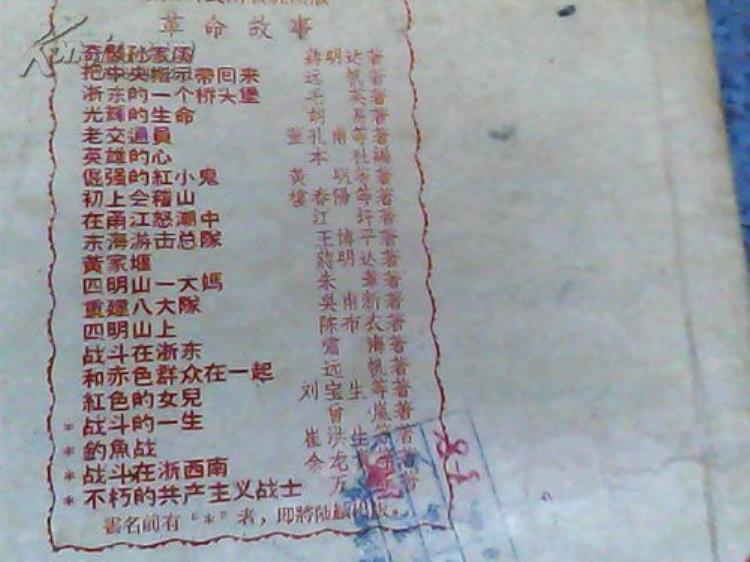 革命故事
蔣明达著
把中央指示带回来 远帆著
浙东的一个桥头堡 著
光輝的生命 胡 著
老交通員 董孔甫等著
英雄的心 本社編
倔强的紅小鬼 黄明等著
初上会稽山 楼春陽等著
在甬江怒潮中 江抒著
东海游击总隊 王博平著
黃家堰 蔣明达著
四明山一大媽 朱 著
重建八大隊 吳甫新著
四明山上 陈布衣著
战斗在浙东 嘯海著
和赤色群众在一起 远帆著
紅色的女兒 刘宝生等著
*战斗的一生 曾 著
*釣魚战 崔洪生 著
*战斗在浙西南 余龙 著
*不朽的共产主义战士 万 著
書名前有“*”者，即將陆續出版。